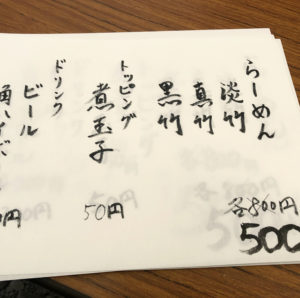 らーめん
淡竹
真竹
黒竹
各800円
500
トッピング
煮玉子
50円
ドリンク
ビール
角ハイボ
0円